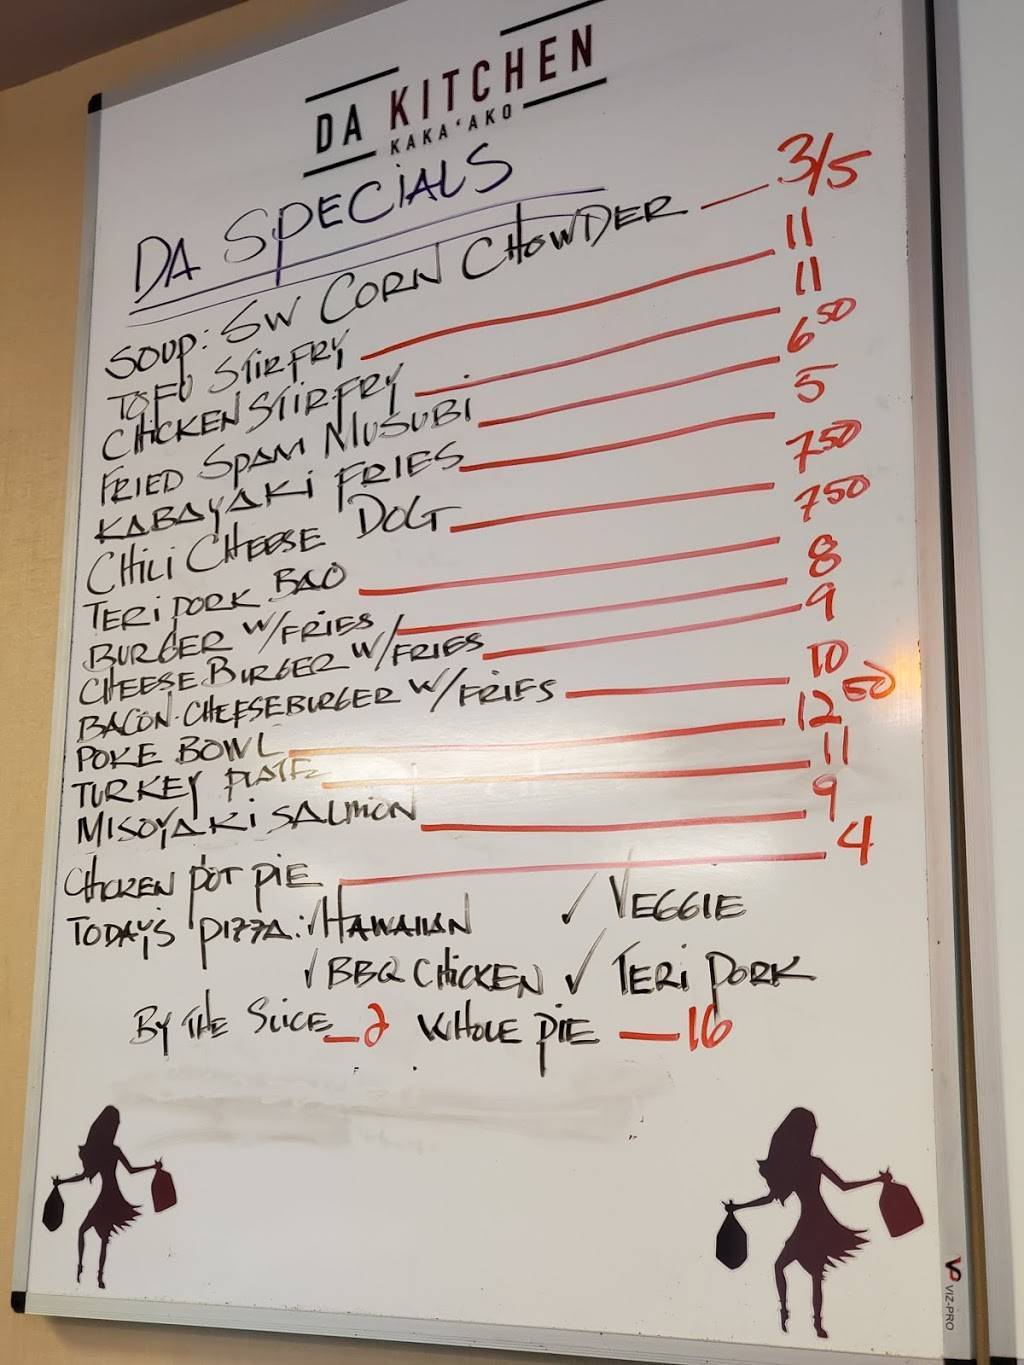 DA KITCHEN
KAKA'AKO
DA SPECIALS
SOUP: SW CORN CHOWDER — 3/5
TOFU STIR FRY — 11
CHICKEN STIR FRY — 11
FRIED SPAM MUSUBI — 6 50
KABAYAKI FRIES — 5
CHILI CHEESE DOG — 7 50
TERI PORK BAO — 7 50
BURGER W/FRIES — 8
CHEESE BURGER W/FRIES — 9
BACON-CHEESEBURGER W/FRIES — 10
POKE BOWL — 12 50
TURKEY PLATE — 11
MISOYAKI SALMON — 9
CHICKEN POT PIE — 4
TODAY'S PIZZA: ✓HAWAIIAN ✓ VEGGIE
✓BBQ CHICKEN ✓ TERI PORK
BY THE SLICE — 2 WHOLE PIE — 16
VIZ-PRO